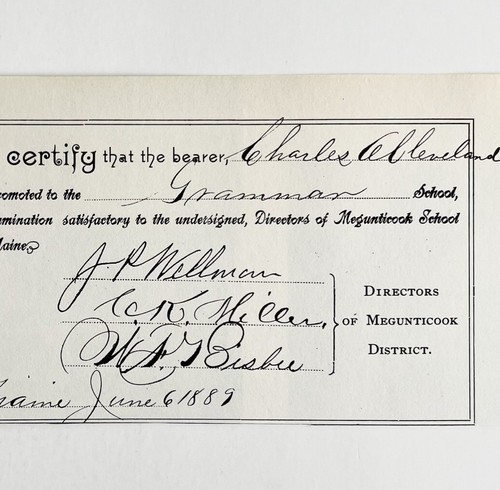 certify that the bearer, Charles A Cleveland
romoted to the Grammar School,
mination satisfactory to the undersigned, Directors of Megunticook School
Maine
J. P. Wellman
C. K. Miller,
W. F. Bisbee
DIRECTORS
OF MEGUNTICOOK
DISTRICT.
Maine June 6 1889